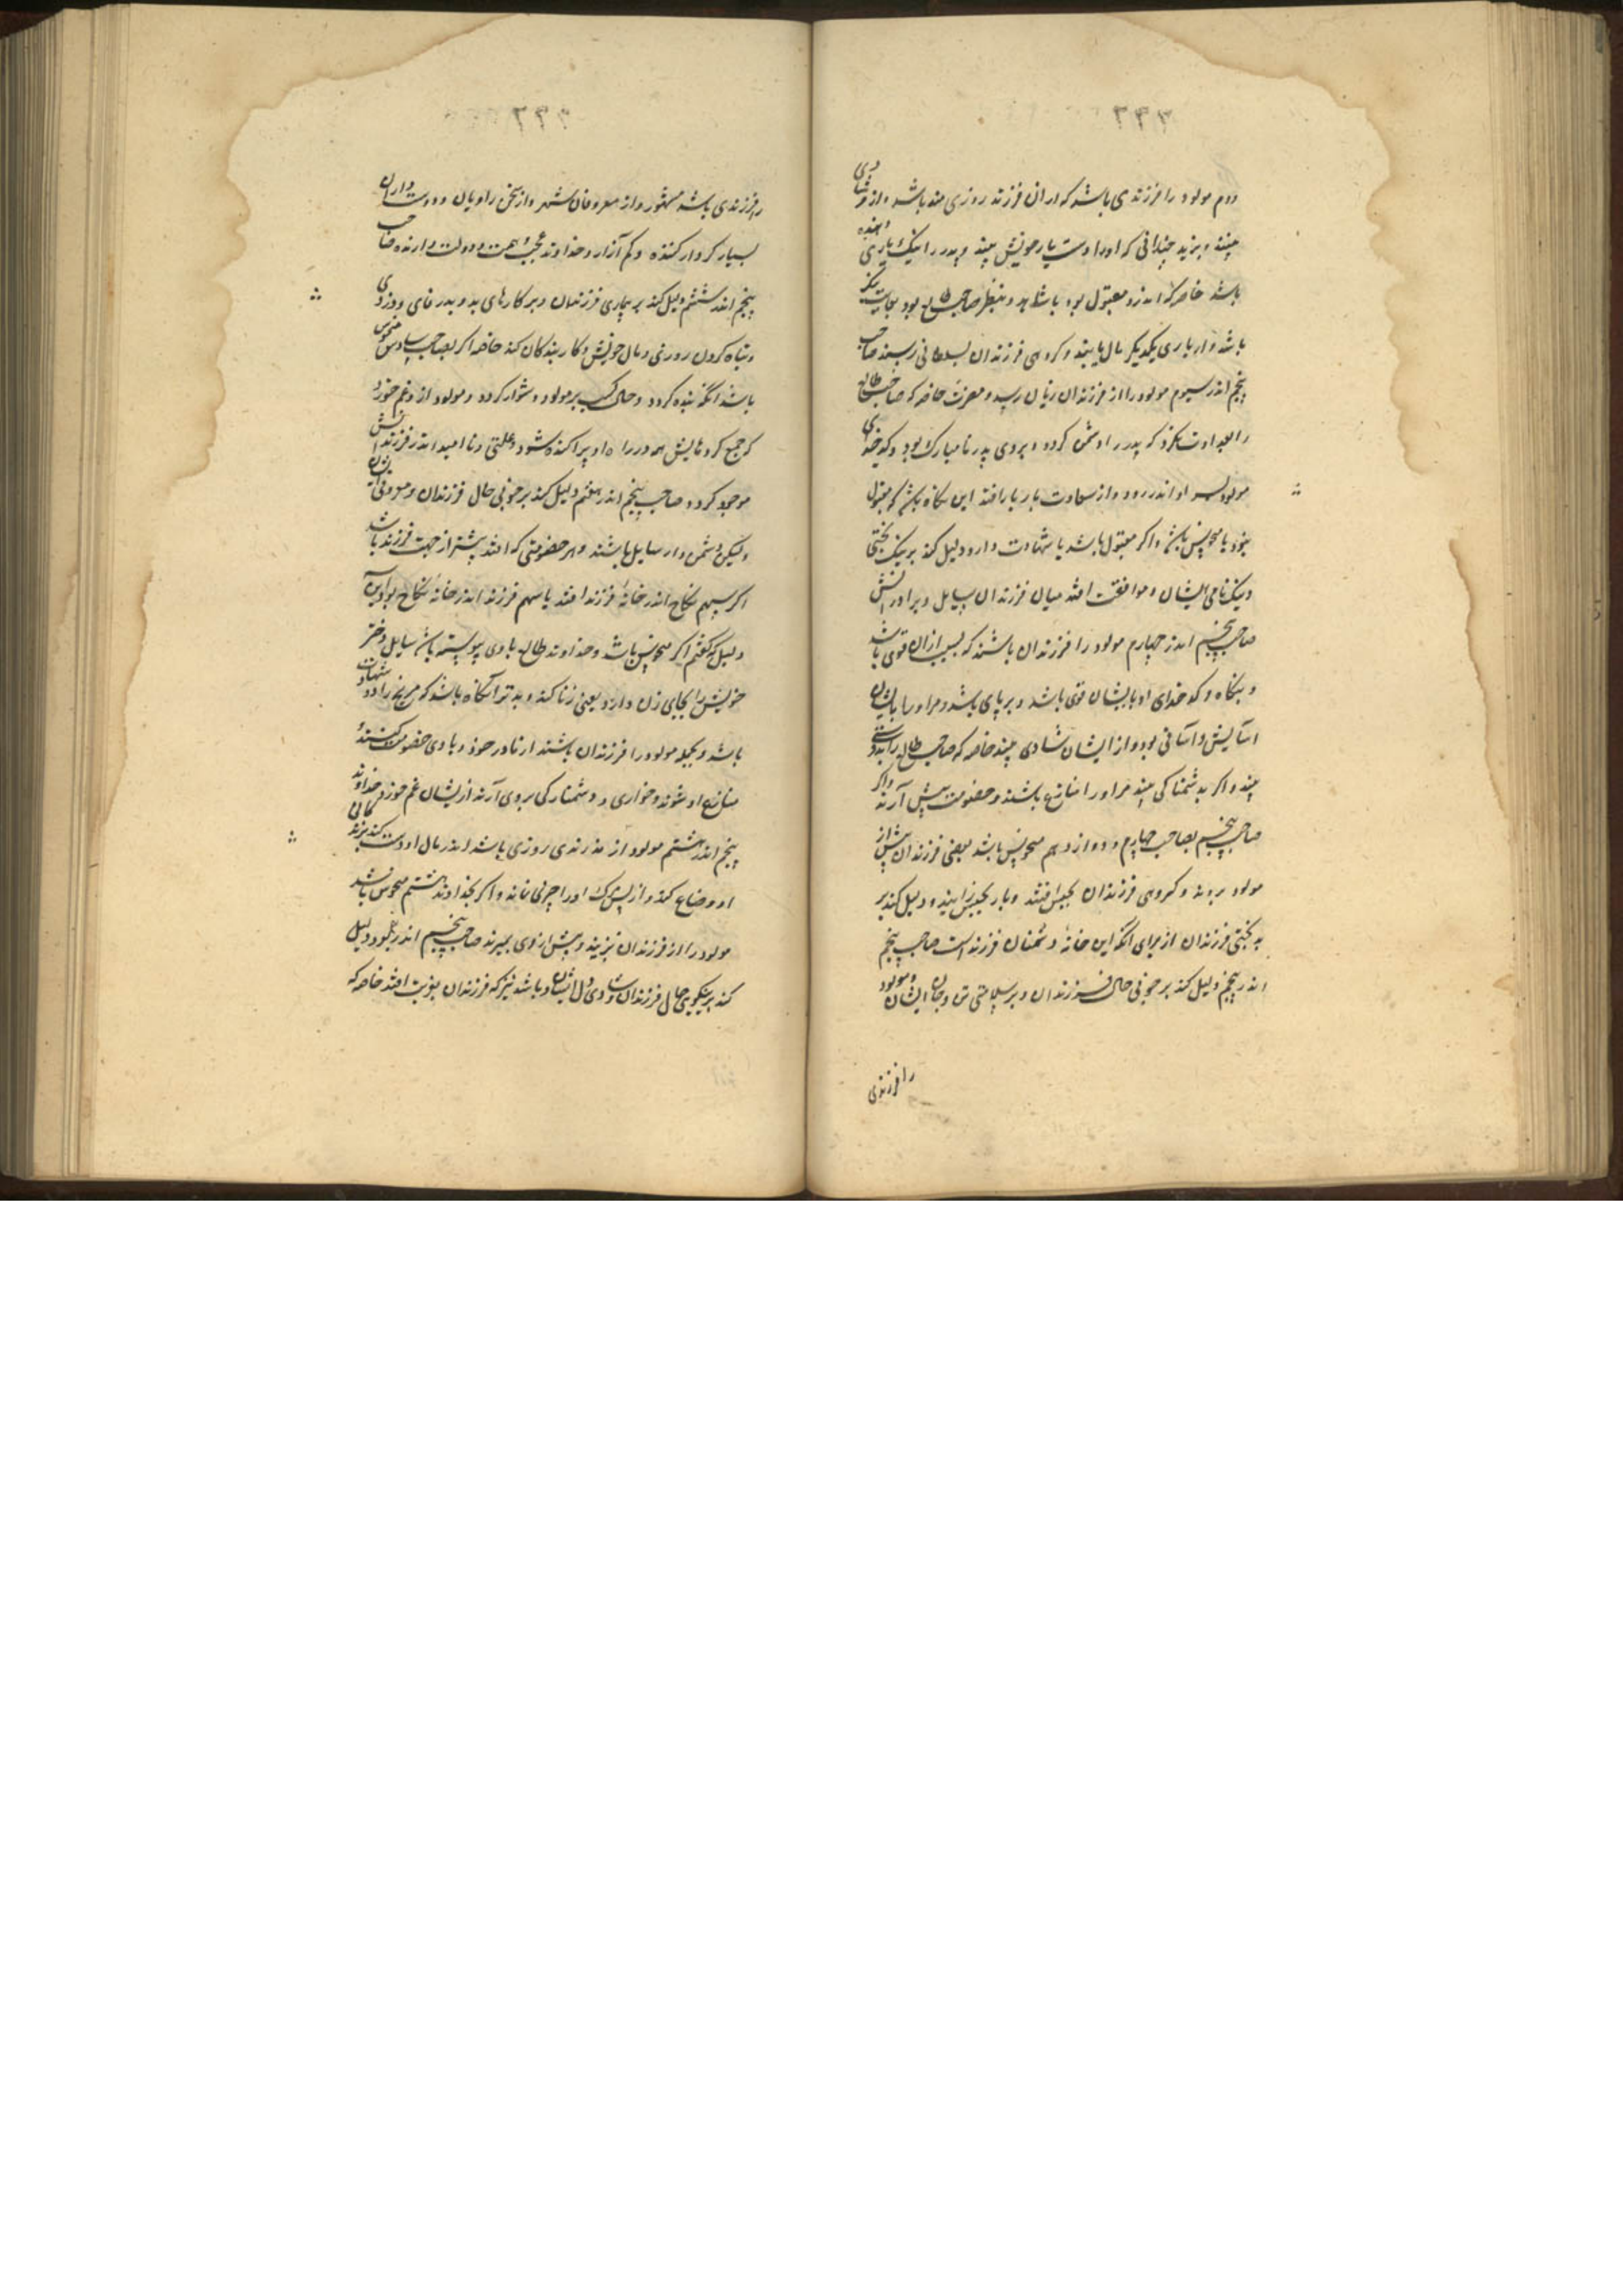 دوم مولود را فرزندی باشد که از ان فرزند روزی مند باشد و از و شادی
بیند و بزید چندانی که او را دست یار خویش بیند و پدر را نیک یاری دهنده
باشد خاصه که اندرو مقبول بود یا شاهد و بنظر صاحب طالع بود بجایت نیکو
باشد و از یاری یکدیگر مال یابند و گروهی فرزندان بسلطانی رسند صاحب
پنجم اندر سیوم مولود را از فرزندان زیان رسد و مضرت خاصه که صاحب طالع
را بعداوت نگرد که پدر را دشمن گردد و بروی پدر نامبارک بود و کدخدای
مولود اندر رود و از سعادت باز پس افتد این بگاه باشد که مقبول
نبود یا منحوس باشد و اگر مقبول باشد یا شهادت دارد دلیل کند بر نیک بختی
و نیک نامی ایشان و موافقت افتد میان فرزندان سایل و برادرانش
صاحب پنجم اندر چهارم مولود را فرزندان باشند که بسبب ازان قوی باشد
و بنگاه و کدخدای او بایشان قوی باشد و بر پای باشد و مر او را بایشان
آسایش و آسانی بود و از ایشان شادی بیند خاصه که صاحب طالع را بدوستی
بیند و اگر بدشمناکی بیند مر او را منازع باشند و خصومت پیش آرند و اگر
صاحب پنجم بصاحب چهارم و دوازدهم منحوس باشد بعضی فرزندان پیش از
مولود بروند و گروهی فرزندان بحبس افتند و یا بحبس زایند و دلیل کند بر
بدبختی فرزندان از برای آنکه این خانه دشمنان فرزند است صاحب پنجم
اندر پنجم دلیل کند بر خوبی حال فرزندان و بر سلامتی تن و جان ایشان و مولود
را فرزندی
را فرزندی باشد مشهور و از معروفان شهر و از سخن راویان و دوست داران
بسیار کردار کننده و کم آزار و خداوند عجب و همت و دولت دارنده صاحب
پنجم اندر ششم دلیل کند بر بیماری فرزندان و بر کارهای بد و بدرفای و دزدی
و تباه کردن روزی و مال خویش و کار بندگان کند خاصه اگر بصاحب سادس منحوس
باشد آنگه بنده گردد و حال کسب بر مولود دشوار گردد و مولود از و غم خورد
که جمع کرد مالیش همه در راه او پراکنده شود و علتی و ناامید اندر فرزندانش
موجود گردد صاحب پنجم اندر هفتم دلیل کند بر خوبی حال فرزندان و معروفی ایشان
ولیکن دشمن دار سایل باشند و هر خصومتی که افتد بیشتر از جهت فرزند باشد
اگر سهم نکاح اندر خانهٔ فرزند افتد یا سهم فرزند اندر خانهٔ نکاح بود این
دلیل که گفتم اگر منحوس باشد و خداوند طالع با وی پیوسته باشد سایل دختر
خویش را بجای زن دارد یعنی زنا کند و بدتر آنگاه باشد که مریخ را درو شهادت
باشد و بجمله مولود را فرزندان باشند از نا در خود و با وی خصومت کنند
منازع او شوند و خواری و دشمنارگی بروی آرند از ایشان غم خورد خداوند
پنجم اندر هشتم مولود از فرزندی روزی باشد اندر مال او دست کند بزند
او و ضایع کند و از پس مرگ او را چیزی نماند و اگر بخداوند هشتم منحوس باشد
مولود را از فرزندان نزیند و پیش از وی بمیرند صاحب پنجم اندر نهم بود دلیل
کند بر نیکویی حال فرزندان و شادی دل ایشان و باشد نیز که فرزندان بغربت افتد خاصه که